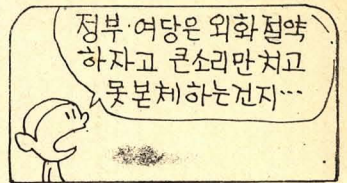 정부·여당은 외화 절약
하자고 큰소리만 치고
못본체 하는건지…